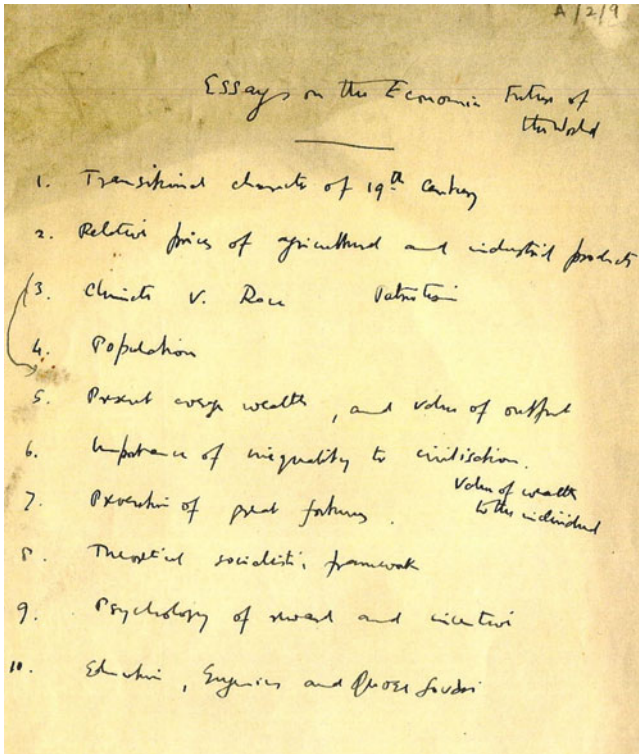 A/2/9
Essays on the Economic Future of
the World
1. Transitional character of 19th Century
2. Relative prices of agricultural and industrial products
3. Climate v. Race Patriotism
4. Population
5. Present average wealth, and value of output
6. Importance of inequality to civilisation.
Value of wealth
to the individual
7. Prevention of great fortunes.
8. Theoretical socialistic framework
9. Psychology of reward and incentive
10. Education, Eugenics and